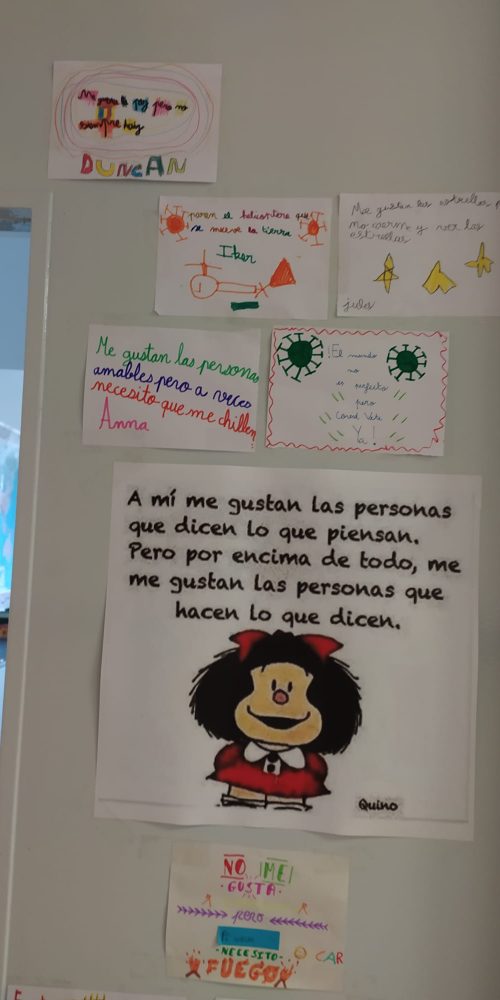 Me gusta la paz pero no
siempre hay
DUNCAN
paren el helicoptero que
se mueve la tierra
Iker
Me gustan las estrellas p
y ver las
estrellas
jules
Me gustan las personas
amables pero a veces
necesito que me chillen
Anna
¡El mundo
no
es perfecto
pero
Ya!
A mí me gustan las personas
que dicen lo que piensan.
Pero por encima de todo, me
me gustan las personas que
hacen lo que dicen.
Quino
NO ME
GUSTA
pero
NECESITO
CAR
FUEGO